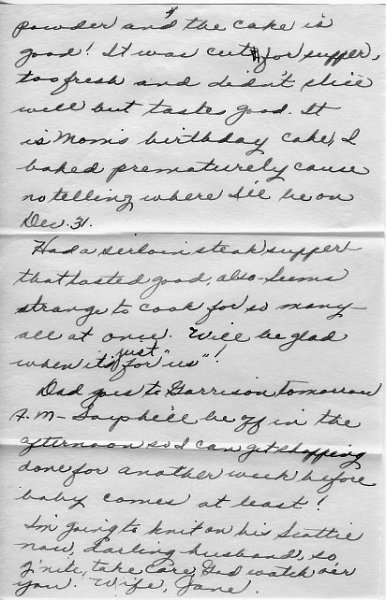 powder and the cake is
good! It was cut for supper,
too fresh and didn't slice
well but tastes good. It
is Mom's birthday cake, I
baked prematurely cause
no telling where I'll be on
Dec. 31.
Had a serloin steak supper
that tasted good, also. Seems
strange to cook for so many
all at once. We'll be glad
when it's just "for us"!
Dad goes to Garrison tomorrow
A.M. - Says he'll be off in the
afternoon so I can get shopping
done for another week before
baby comes at least!
I'm going to knit on his Scottie
now, darling husband, so
g'nite, take care, God watch o'er
you. Wife, Jane.